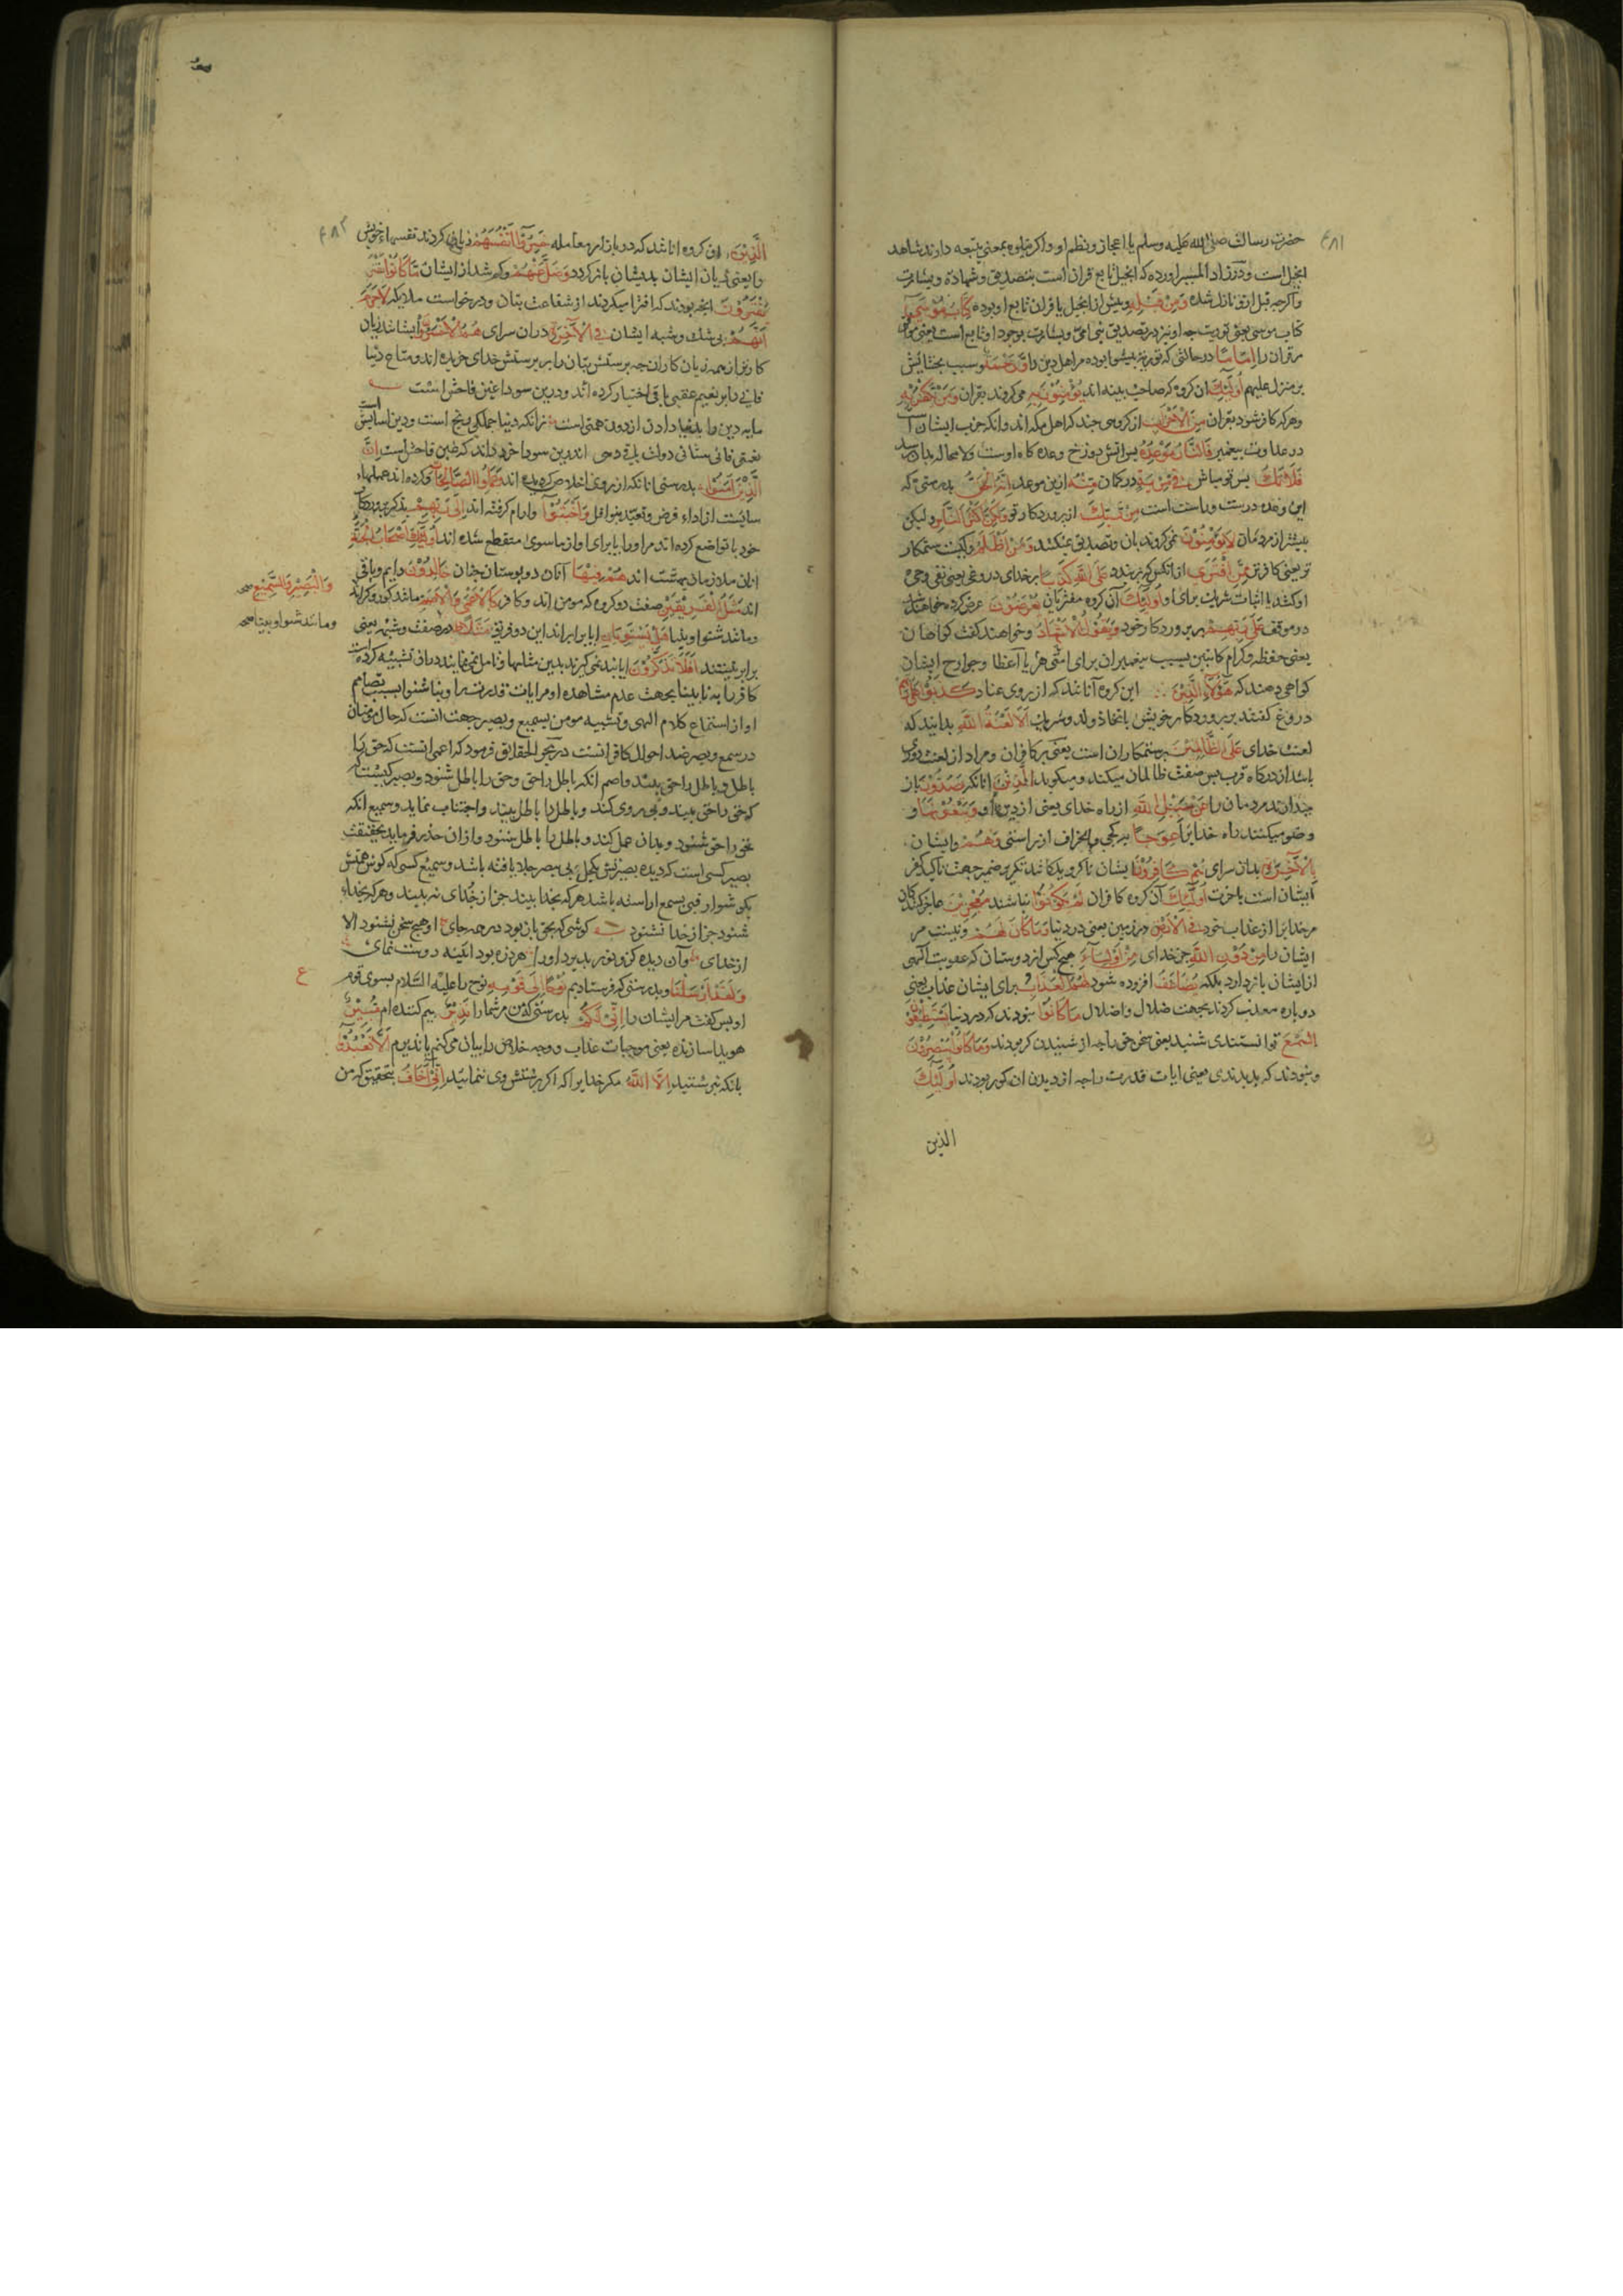 حضرت رسالت صلی الله علیه وسلم یا اعجاز و نظم او و اکر یتلوه بمعنی یتبعه دارند شاهد
انجیل است و در زاد المسیر اورده که انجیل تابع قران است بتصدیق و شهادة و بشارت
و اکرچه قبل ازو نازل شده وَمِن قَبْلِهِ و پیش از انجیل یا قران تابع او بوده كِتَابُ مُوسَى
کتاب موسی یعنی توریت چه او نیز در تصدیق نبی امی و بشارت بوجود او تابع است یعنی
إِمَامًا در حالتی که توریة پیشوا بوده مر اهل دین را وَرَحْمَةً و سبب بخشایش
بر منزل علیهم أُولَئِكَ ان کروه که صاحب بینه اند يُؤْمِنُونَ بِهِ می کروند بقران وَمَن يَكْفُرْ بِهِ
و هر که کافر شود بقران مِنَ الْأَحْزَابِ از کروهی چند که اهل مکه اند و انکه حزب ایشان است
در عداوت پیغمبر فَالنَّارُ مَوْعِدُهُ پس اتش دوزخ وعده کاه اوست ولا محاله بدان رسد
فَلَا تَكُ پس تو مباش فِي مِرْيَةٍ در کمان مِنْهُ ازین موعد إِنَّهُ الْحَقُّ بدرستی که
این وعده درست و راست است مِن رَّبِّكَ از پروردکار تو وَلَكِنَّ أَكْثَرَ النَّاسِ و لیکن
بیشتر از مردمان لَا يُؤْمِنُونَ نمی کروند بان و تصدیق نمیکنند وَمَنْ أَظْلَمُ و کیست ستمکار
تر یعنی کافر تر مِمَّنِ افْتَرَى از انکس که بر بندد عَلَى اللَّهِ كَذِبًا بر خدای دروغی یعنی نفی وحی
او کند یا اثبات شریک برای او أُولَئِكَ آن کروه مفتریان يُعْرَضُونَ عرض کرده خواهند شد
در موقف عَلَى رَبِّهِمْ بر پروردکار خود وَيَقُولُ الْأَشْهَادُ و خواهند کفت کواهان
یعنی حفظه و کرام کاتبین بسبب پیغمبران برای امتی هر یا اعضا و جوارح ایشان
کواهی دهند که هَؤُلَاءِ الَّذِينَ این کروه آنانند که از روی عناد كَذَبُوا عَلَى رَبِّهِمْ
دروغ کفتند بر پروردکار خویش باتخاذ ولد و شریک أَلَا لَعْنَةُ اللَّهِ بدانید که
لعنت خدای عَلَى الظَّالِمِينَ بر ستمکاران است یعنی بر کافران و مراد از لعنت دوری
باشد از درکاه قرب پس صفت ظالمان میکند و میکوید الَّذِينَ انانکه يَصُدُّونَ باز
میدارند مردمان را عَن سَبِيلِ اللَّهِ از راه خدای یعنی از دین او وَيَبْغُونَهَا و
وصف میکنند راه خدا برا عِوَجًا بر کجی و انحراف از راستی وَهُمْ و ایشان
بِالْآخِرَةِ بدان سرای هُمْ كَافِرُونَ ایشان ناکرویدکانند تکریر ضمیر جهت تاکید کفر
ایشان است باخرت أُولَئِكَ آن کروه کافران لَمْ يَكُونُوا نباشند مُعْجِزِينَ عاجز کنندکان
مر خدایرا از عذاب خود فِي الْأَرْضِ در زمین یعنی در دنیا وَمَا كَانَ لَهُمْ و نیست مر
ایشان را مِن دُونِ اللَّهِ جز خدای مِنْ أَوْلِيَاءَ هیچ کس از دوستان که عقوبت الهی
از ایشان باز دارد بلکه يُضَاعَفُ افزوده شود لَهُمُ الْعَذَابُ برای ایشان عذاب یعنی
دوباره معذب کردند بجهت ضلال و اضلال مَا كَانُوا نبودند که در دنیا يَسْتَطِيعُونَ
السَّمْعَ توانستندی شنید یعنی سخن حق را چه از شنیدن کر بودند وَمَا كَانُوا يُبْصِرُونَ
و نبودند که بدیدندی یعنی ایات قدرت را چه از دیدن ان کور بودند أُولَئِكَ
الذین
الَّذِينَ این کروه انانند که در بازار معامله خَسِرُوا أَنفُسَهُمْ زیان کردند نفسهاء خویش
را یعنی زیان ایشان بدیشان باز کردد وَضَلَّ عَنْهُم و کم شد از ایشان مَّا كَانُوا
يَفْتَرُونَ انچه بودند که افترا میکردند از شفاعت بتان و درخواست ملایکه لَا جَرَمَ
أَنَّهُمْ بی شک و شبه ایشان فِي الْآخِرَةِ دران سرای هُمُ الْأَخْسَرُونَ ایشانند زیان
کارتر از همه زیان کاران چه پرستش بتان را بر پرستش خدای خریده اند و متاع دنیا
فانی را بر نعیم عقبی باقی اختیار کرده اند و درین سودا غبن فاحش است
مایه دین را بدنیا دادن از دون همتی است زانکه دنیا جملکی رنج است و دین اسایش است
نعمتی فانی ستانی دولت باقی دهی اندرین سودا خرد داند که غبن فاحش است إِنَّ
الَّذِينَ آمَنُوا بدرستی انانکه از روی اخلاص کرویده اند وَعَمِلُوا الصَّالِحَاتِ و کرده اند عملهاء
شایسته از اداء فرض و تعبد بنوافل وَأَخْبَتُوا و ارام کرفته اند إِلَى رَبِّهِمْ بذکر پروردکار
خود یا تواضع کرده اند مر او را یا برای او از ما سوی منقطع شده اند أُولَئِكَ أَصْحَابُ الْجَنَّةِ
انان ملازمان بهشت اند هُمْ فِيهَا آنان در بوستان جنان خَالِدُونَ دایم و باقی
اند مَثَلُ الْفَرِيقَيْنِ صفت دو کروه که مومن اند و کافر كَالْأَعْمَى وَالْأَصَمِّ مانند کور و کر اند
وَالْبَصِيرِ وَالسَّمِيعِ صح
و مانند شنوا و بینا صح
و مانند شنوا و بینا هَلْ يَسْتَوِيَانِ ایا برابر اند این دو فریق مَثَلًا در صفت و شبه یعنی
برابر نیستند أَفَلَا تَذَكَّرُونَ ایا پند نمی کیرند بدین مثلها و تامل نمی نمایند دران تشبیه کرده است
کافر را به نابینا بجهت عدم مشاهده او مر ایات قدرت را و بنا شنوا بسبب تصامم
او از استماع کلام الهی و تشبیه مومن بسمیع و بصیر جهت انست که حال مومنان
در سمع و بصر ضد احوال کافرانست در بحر الحقایق فرمود که اعمی انست که حق را
باطل و باطل را حق بیند و اصم انکه باطل را حق و حق را باطل شنود و بصیر کیست
که حق را حق بیند و پی روی کند و باطل را باطل بیند و اجتناب نماید و سمیع انکه
حق را حق شنود و بدان عمل کند و باطل را باطل شنود و ازان حذر فرماید بحقیقت
بصیر کسی است که دیده بصیرتش بکحل بی یبصر جلا یافته باشد و سمیع کسی که کوش همتش
بکوشوار فبی یسمع اراسته باشد هر که بخدا بیند جز از خدای نه بیند و هر که بخداء
شنود جز از خدا نشنود کوشی که بحق باز بود در همه جای او هیچ سخن نشنود الا
از خدای وان دیده کزو نور پذیرد او را هر ذره بود ائینه دوست نمای
وَلَقَدْ أَرْسَلْنَا و بدرستی که فرستادیم نُوحًا إِلَى قَوْمِهِ نوح را علیه السلام بسوی قوم
ع
او پس کفت مر ایشان را إِنِّي لَكُمْ بدرستی که من مر شما را نَذِيرٌ بیم کننده ام مُّبِينٌ
هویدا سازنده یعنی موجبات عذاب و وجه خلاص را بیان می کنم أَن لَّا تَعْبُدُوا
بانکه نپرستید إِلَّا اللَّهَ مکر خدایرا که اکر پرستش وی ننمائید إِنِّي أَخَافُ بتحقیق که من